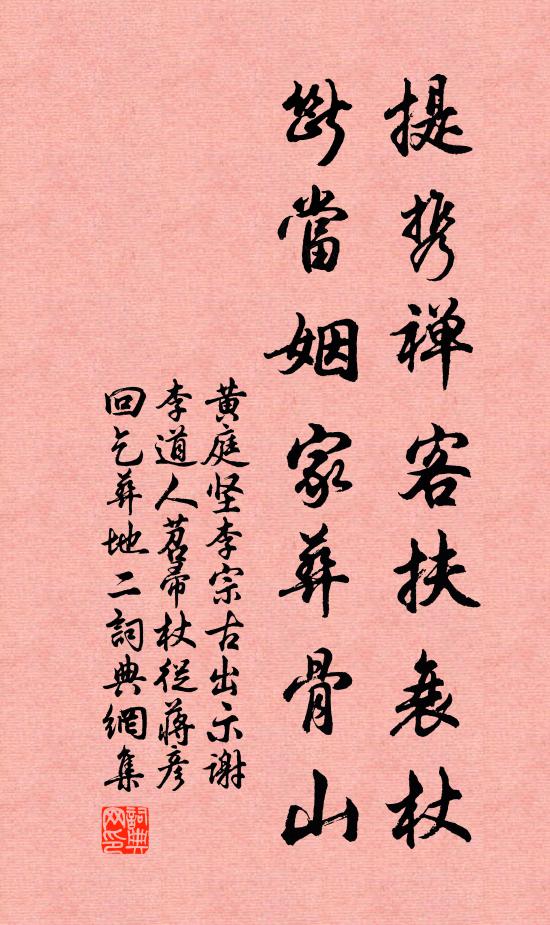 提携禅客扶衰杖
斷當姻家葬骨山
黄庭坚李宗古出示謝
李道人苕帚杖從蔣彦
回乞葬地二詞典網集
詞典
网印